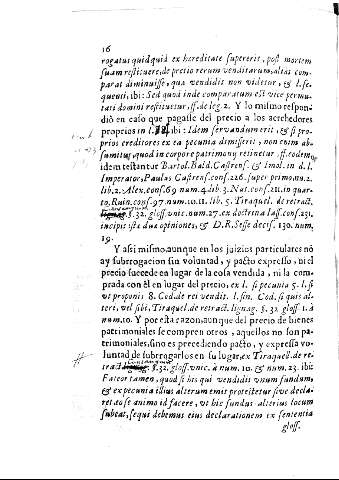 16
rogatus quidquid ex hereditate supererit, post mortem
suam restituere, de pretio rerum venditarum, alias com-
parat diminuisse, qua vendidit non videtur, & l. se-
quenti, ibi: Sed quod inde comparatum est vice permu-
tati domini restituetur, ff. de leg. 2. Y lo mismo respon-
diò en caso que pagasse del precio a los acrehedores
proprios in l. ibi: Idem servandum erit, & si pro-
prios creditores ex ea pecunia dimisserit, non enim ab-
sumitur, quod in corpore patrimonij retinetur, ff. eodem,
idem testantur Bartol. Bald. Castrens. & Imol. in d. l.
Imperator, Paulus Castrens. cons. 226. super primo, nu. 2.
lib. 2. Alex. cons. 69 num. 4. lib. 3. Nat. cons. 211. in quar-
to, Ruin. cons. 97. num. 10. 11. lib. 5. Tiraquel. de retract.
§. 32. gloss. vnic. num. 27. ex doctrina Iass. cons. 231.
incipit ista dua opiniones, & D. R. Sesse decis. 130. num.
19.
Y assi mismo, aunque en los juizios particulares no
ay subrogacion sin voluntad, y pacto expresso, ni el
precio sucede en lugar de la cosa vendida, ni la com-
prada con èl en lugar del precio, ex l. si pecunia 5. l. si
vt proponis 8. Cod. de rei vendit. l. fin. Cod. si quis al-
teri, vel sibi, Tiraquel. de retract. lignag. §. 32. gloss. 1. a
num. 10. Y por esta razon, aunque del precio de bienes
patrimoniales se compren otros, aquellos no son pa-
trimoniales, sino es precediendo pacto, y expressa vo-
luntad de subrogarlos en su lugar, ex Tiraquel. de re-
tract. §. 32. gloss. vnic. a num. 10. & num. 23. ibi:
Fateor tamen, quod si his qui vendidit vnum fundum,
& ex pecunia illius alterum emit protestetur sive decla-
ret to se animo id facere, vt hic fundus alterius locum
subeat, sequi debemus eius declarationem ex sententia
gloss.